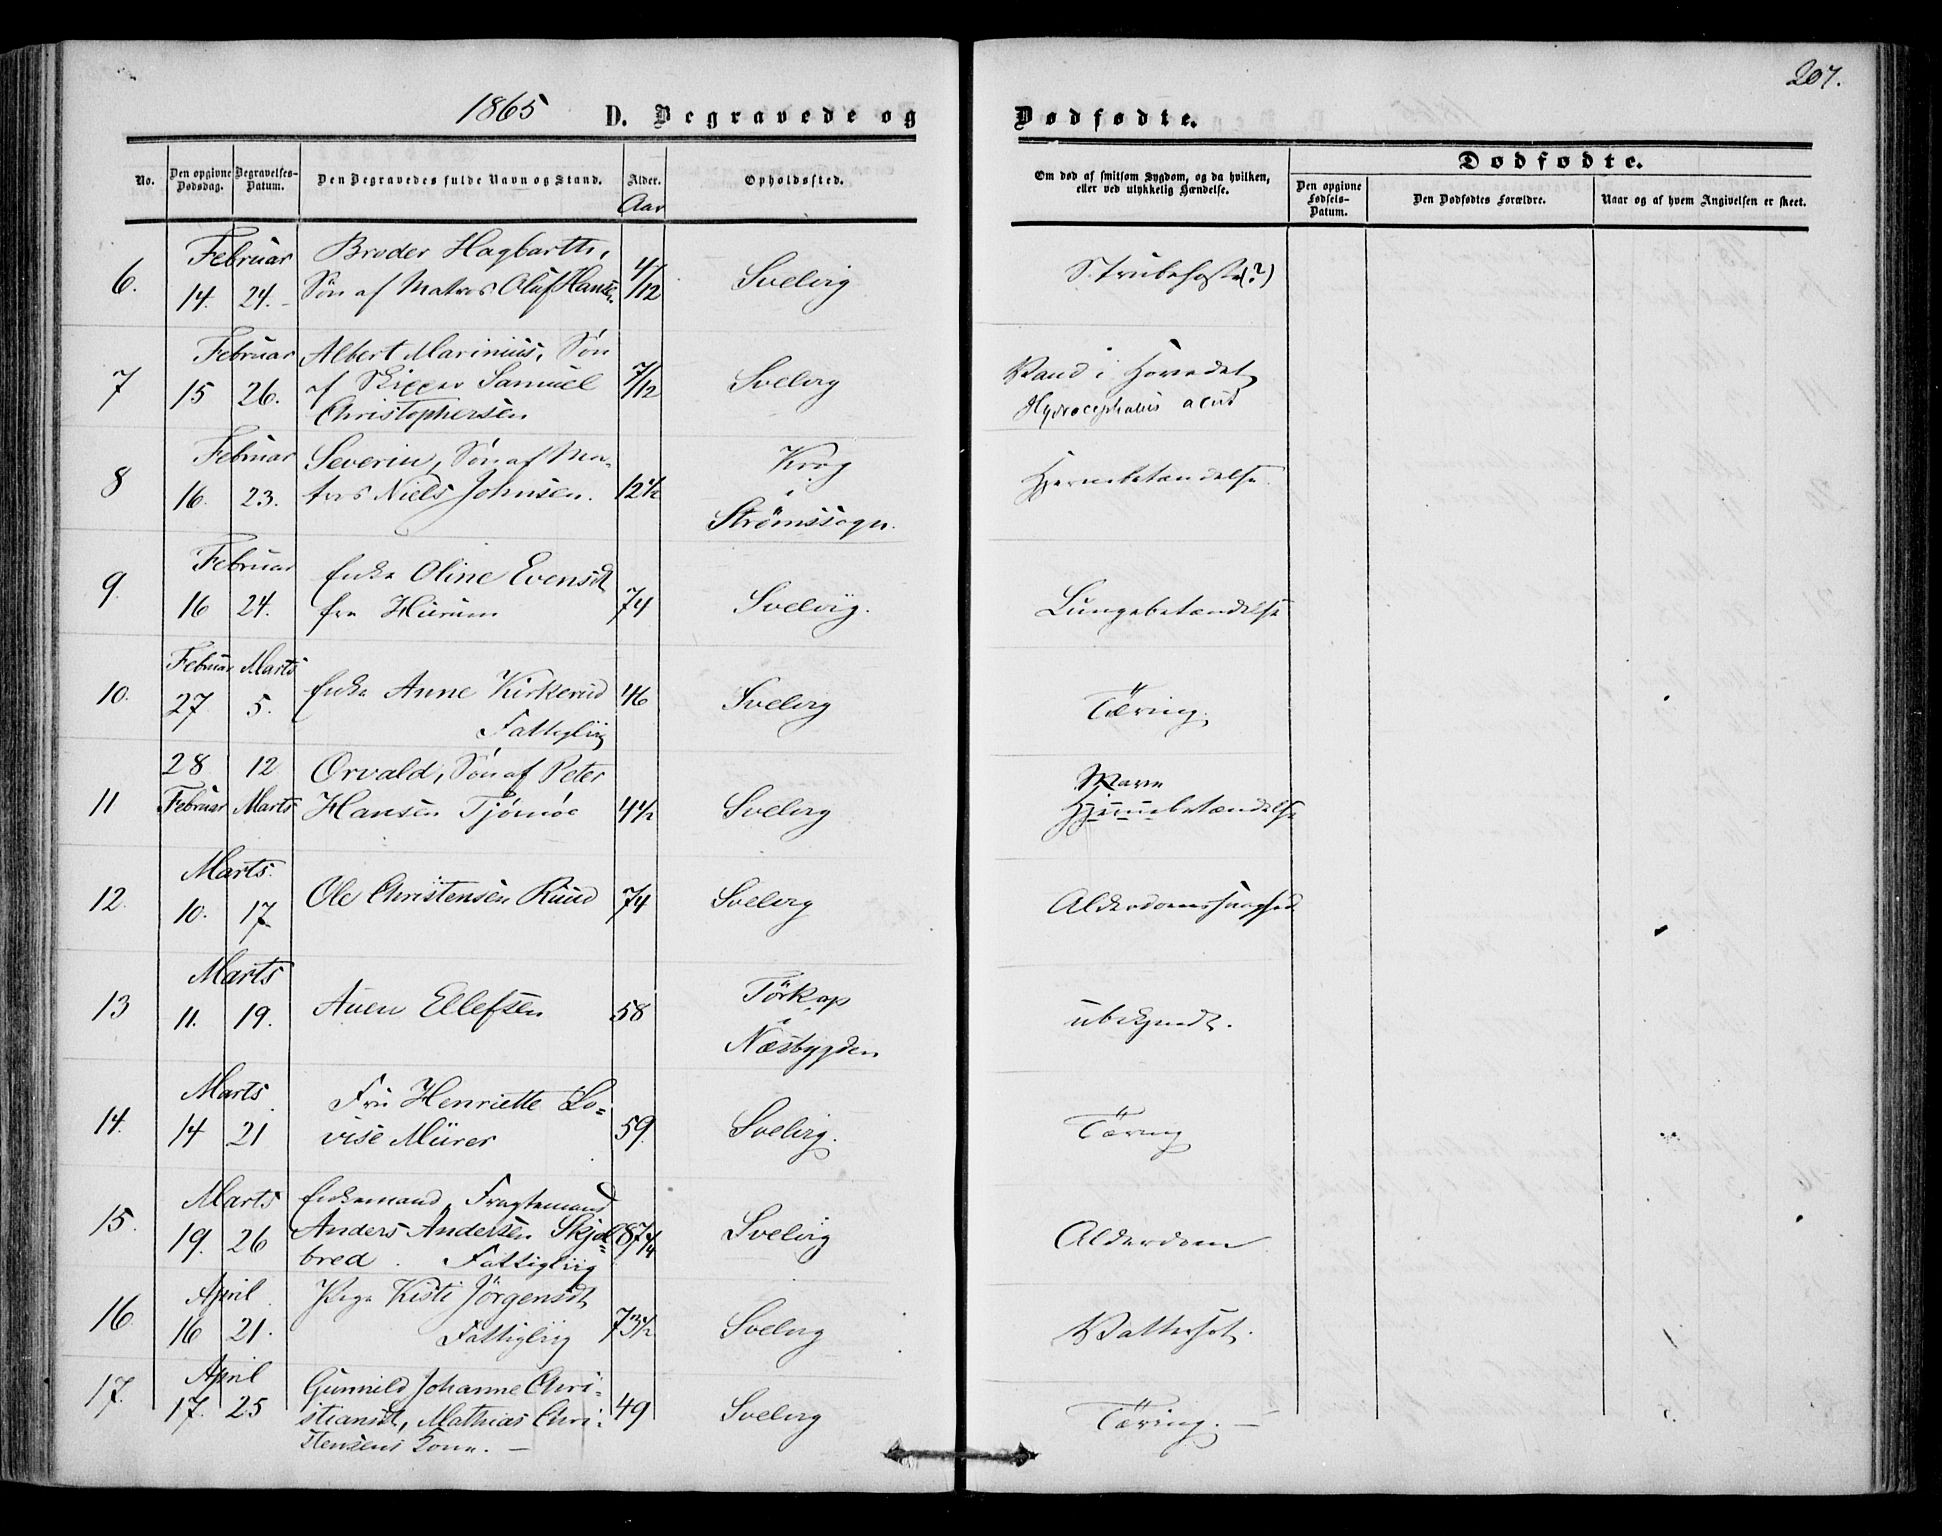 207.
1865 D. Begravede og Dødfødte.
Dødfødte.
No. Den opgivne Dødsdag. Begravelses-Datum. Den Begravedes fulde Navn og Stand. Alder. Opholdssted. Om død af smitsom Sygdom, og da hvilken, eller ved ulykkelig Hændelse. Den opgivne Fødsels-Datum. Den Dødfødtes Forældre. Naar og af hvem Angivelsen er skeet.
Aar
Februar Broder Hagbarth,
6. 14. 24. Søn af Matros Oluf Hansen 4/12 Svelvig Strubehoste(?)
Februar Albert Marinius, Søn
7 15 26. af Skipper Samuel 7/12 Svelvig Vand i Hovedet
Christophersen Hydrocephalus acut
Februar Severin, Søn af Ma- Krog
8 16. 23. tros Niels Johnsen. 12½ i Hjernebetændelse.
Strømssogn.
Februar Enke Oline Evensdt
9. 16 24. fra Hurum 74 Svelvig. Lungebetændelse
Februar Marts
10. 27 5. Enke Anne Kirkerud 46 Svelvig Tæring.
Fattiglig
28 12 Orvald, Søn af Peter Mave
11 Februar Marts Hansen Tjømøe 4½ Svelvig Hjernebetændelse
Marts.
12. 10. 17 Ole Christensen Ruud 74 Svelvig Alderdomssvaghed
Marts Törkop
13 11. 19. Auen Ellefsen 58 i ubekjendt.
Næsbygden
Marts Fru Henriette Lo-
14. 14 21 vise Mürer 59. Svelvig. Tæring
Marts Enkemand, Fragtemand
15. 19. 26 Anders Andersen Skjel- 87¼ Svelvig Alderdom
bred. Fattiglig
April Pige Kisti Jörgensdt
16 16 21. Fattiglig 73½ Svelvig Vattersot.
April Gunnild Johanne Chri-
17. 17. 25 stiansdt, Mathias Chri- 49 Svelvig Tæring. —
stensens Kone. —